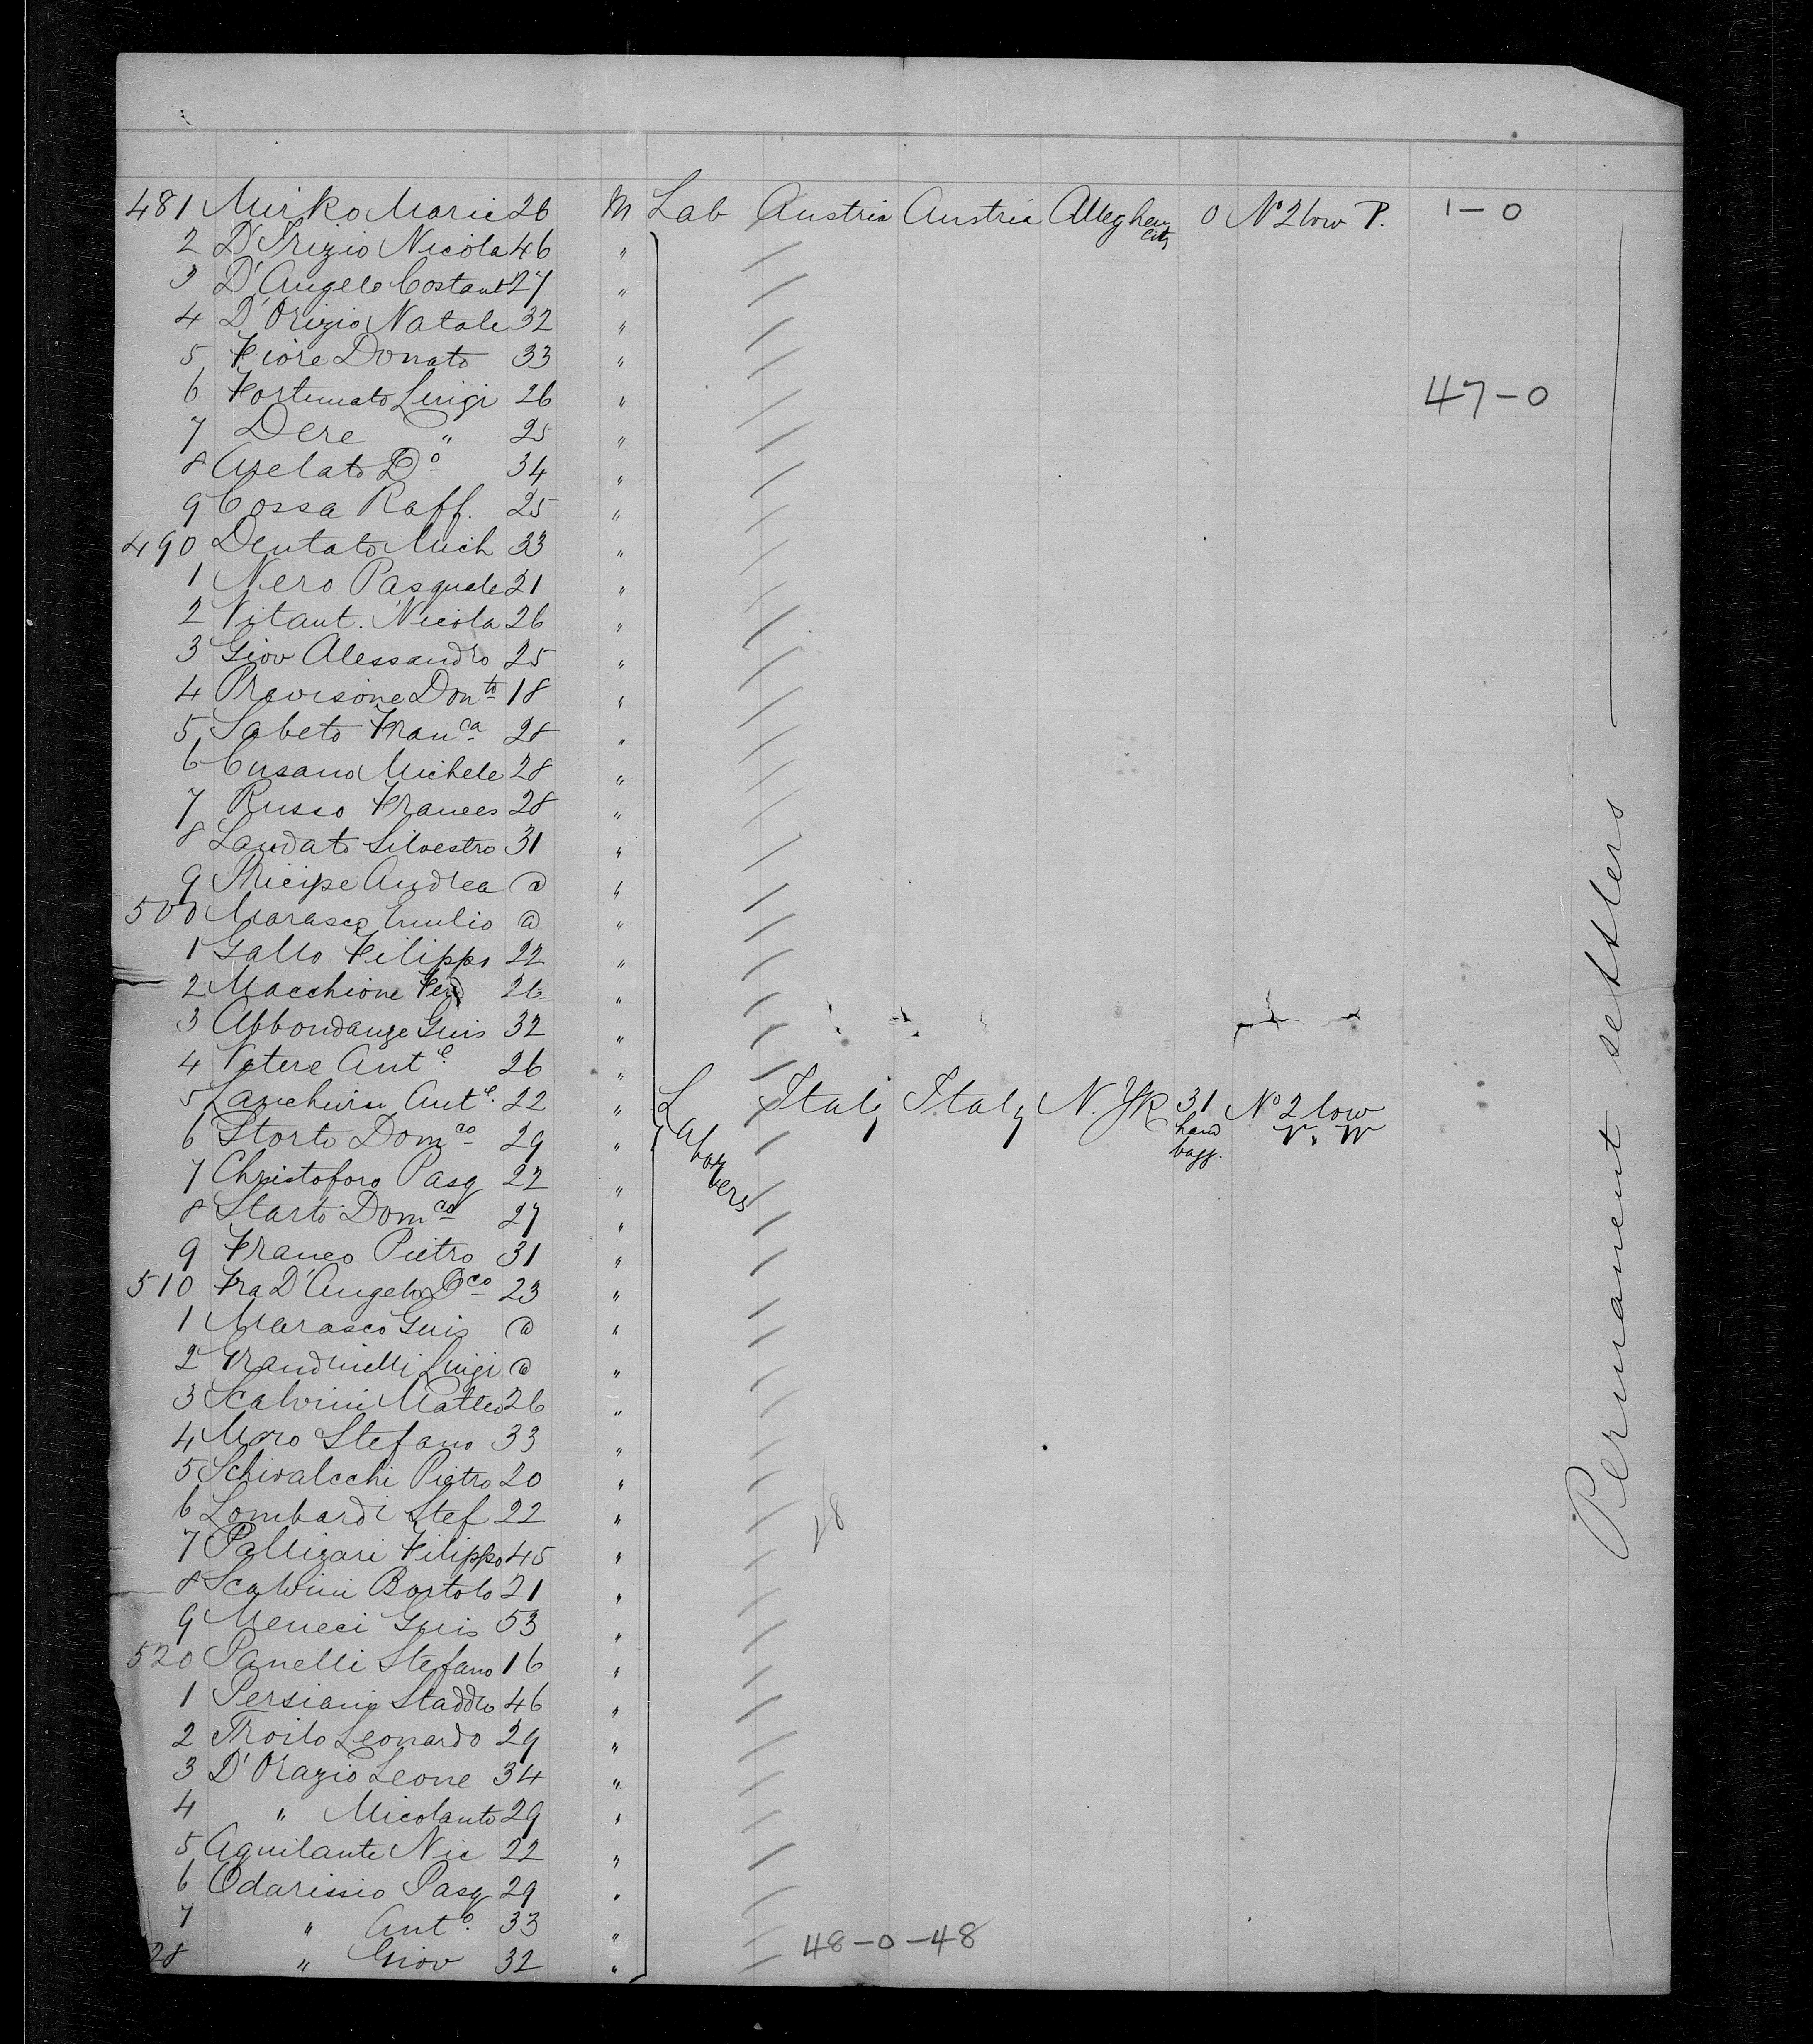 481 Mirko Marie 26 M Lab Austria Austria Allegheny City 0 No 2 low P. 1-0
2 Nicola 46 "
3 D'Angelo Costant 27 "
4 D'Orizio Natale 32 "
5 Fiore Donato 33 "
6 Fortunato Luigi 26 " 47-0
7 Dere " 25 "
8 Do 34 "
9 Cossa Raff. 25 "
490 Dentato Mich 33 "
1 Nero Pasquale 21 "
2 Vitant. Nicola 26 "
3 Giov Alessandro 25 "
4 Previsone Donto 18 "
5 Sabeto Franca 28 "
6 Cusano Michele 28 "
7 Russo Frances 28 "
8 Laudato Silvestro 31 "
9 Andrea @ "
500 Marasco Emilio @ "
1 Gallo Filippo 22 "
2 Macchione Ferd 26 "
3 Abbondanze Guis 32 "
4 Ante. 26 "
5 Ante. 22 " Laborers Italy Italy N. YK 31 hand bagg. No 2 low
6 Storto Domco 29 "
7 Christoforo Pasq 22 "
8 Starto Domco 27 "
9 Franco Pietro 31 "
510 Fra D'Angelo Dco 23 "
1 Marasco Guis @ "
2 Grandinelli Luigi @ "
3 Scalvini Matteo 26 "
4 Moro Stefano 33 "
5 Pietro 20 "
6 Lombardi Stef 22 "
7 Pallizari Filippo 45 "
8 Scalvini Bortolo 21 "
9 Meneci Guis 53 "
520 Panelli Stefano 16 "
1 Persiani Staddro 46 "
2 Troilo Leonardo 29 "
3 D'Orazio Leone 34 "
4 " Nicolanto 29 "
5 Aquilante Nic 22 "
6 Odarissio Pasq 29 "
7 " Anto. 33 "
28 " Giov 32 "
48-0-48
Permanent settlers